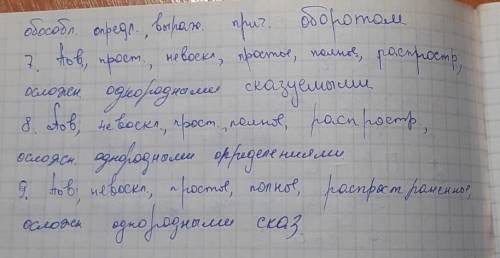 обособл. опредл., выраж. прич. оборотом
7. Пов, прост., невоскл, простое, полное, распростр,
осложн однородными сказуемыми
8. Пов, невоскл, прост., полное, распростр,
осложн. однородными определениями
9. Пов, невоскл, простое, полное, распространенное,
осложн однородными сказ.